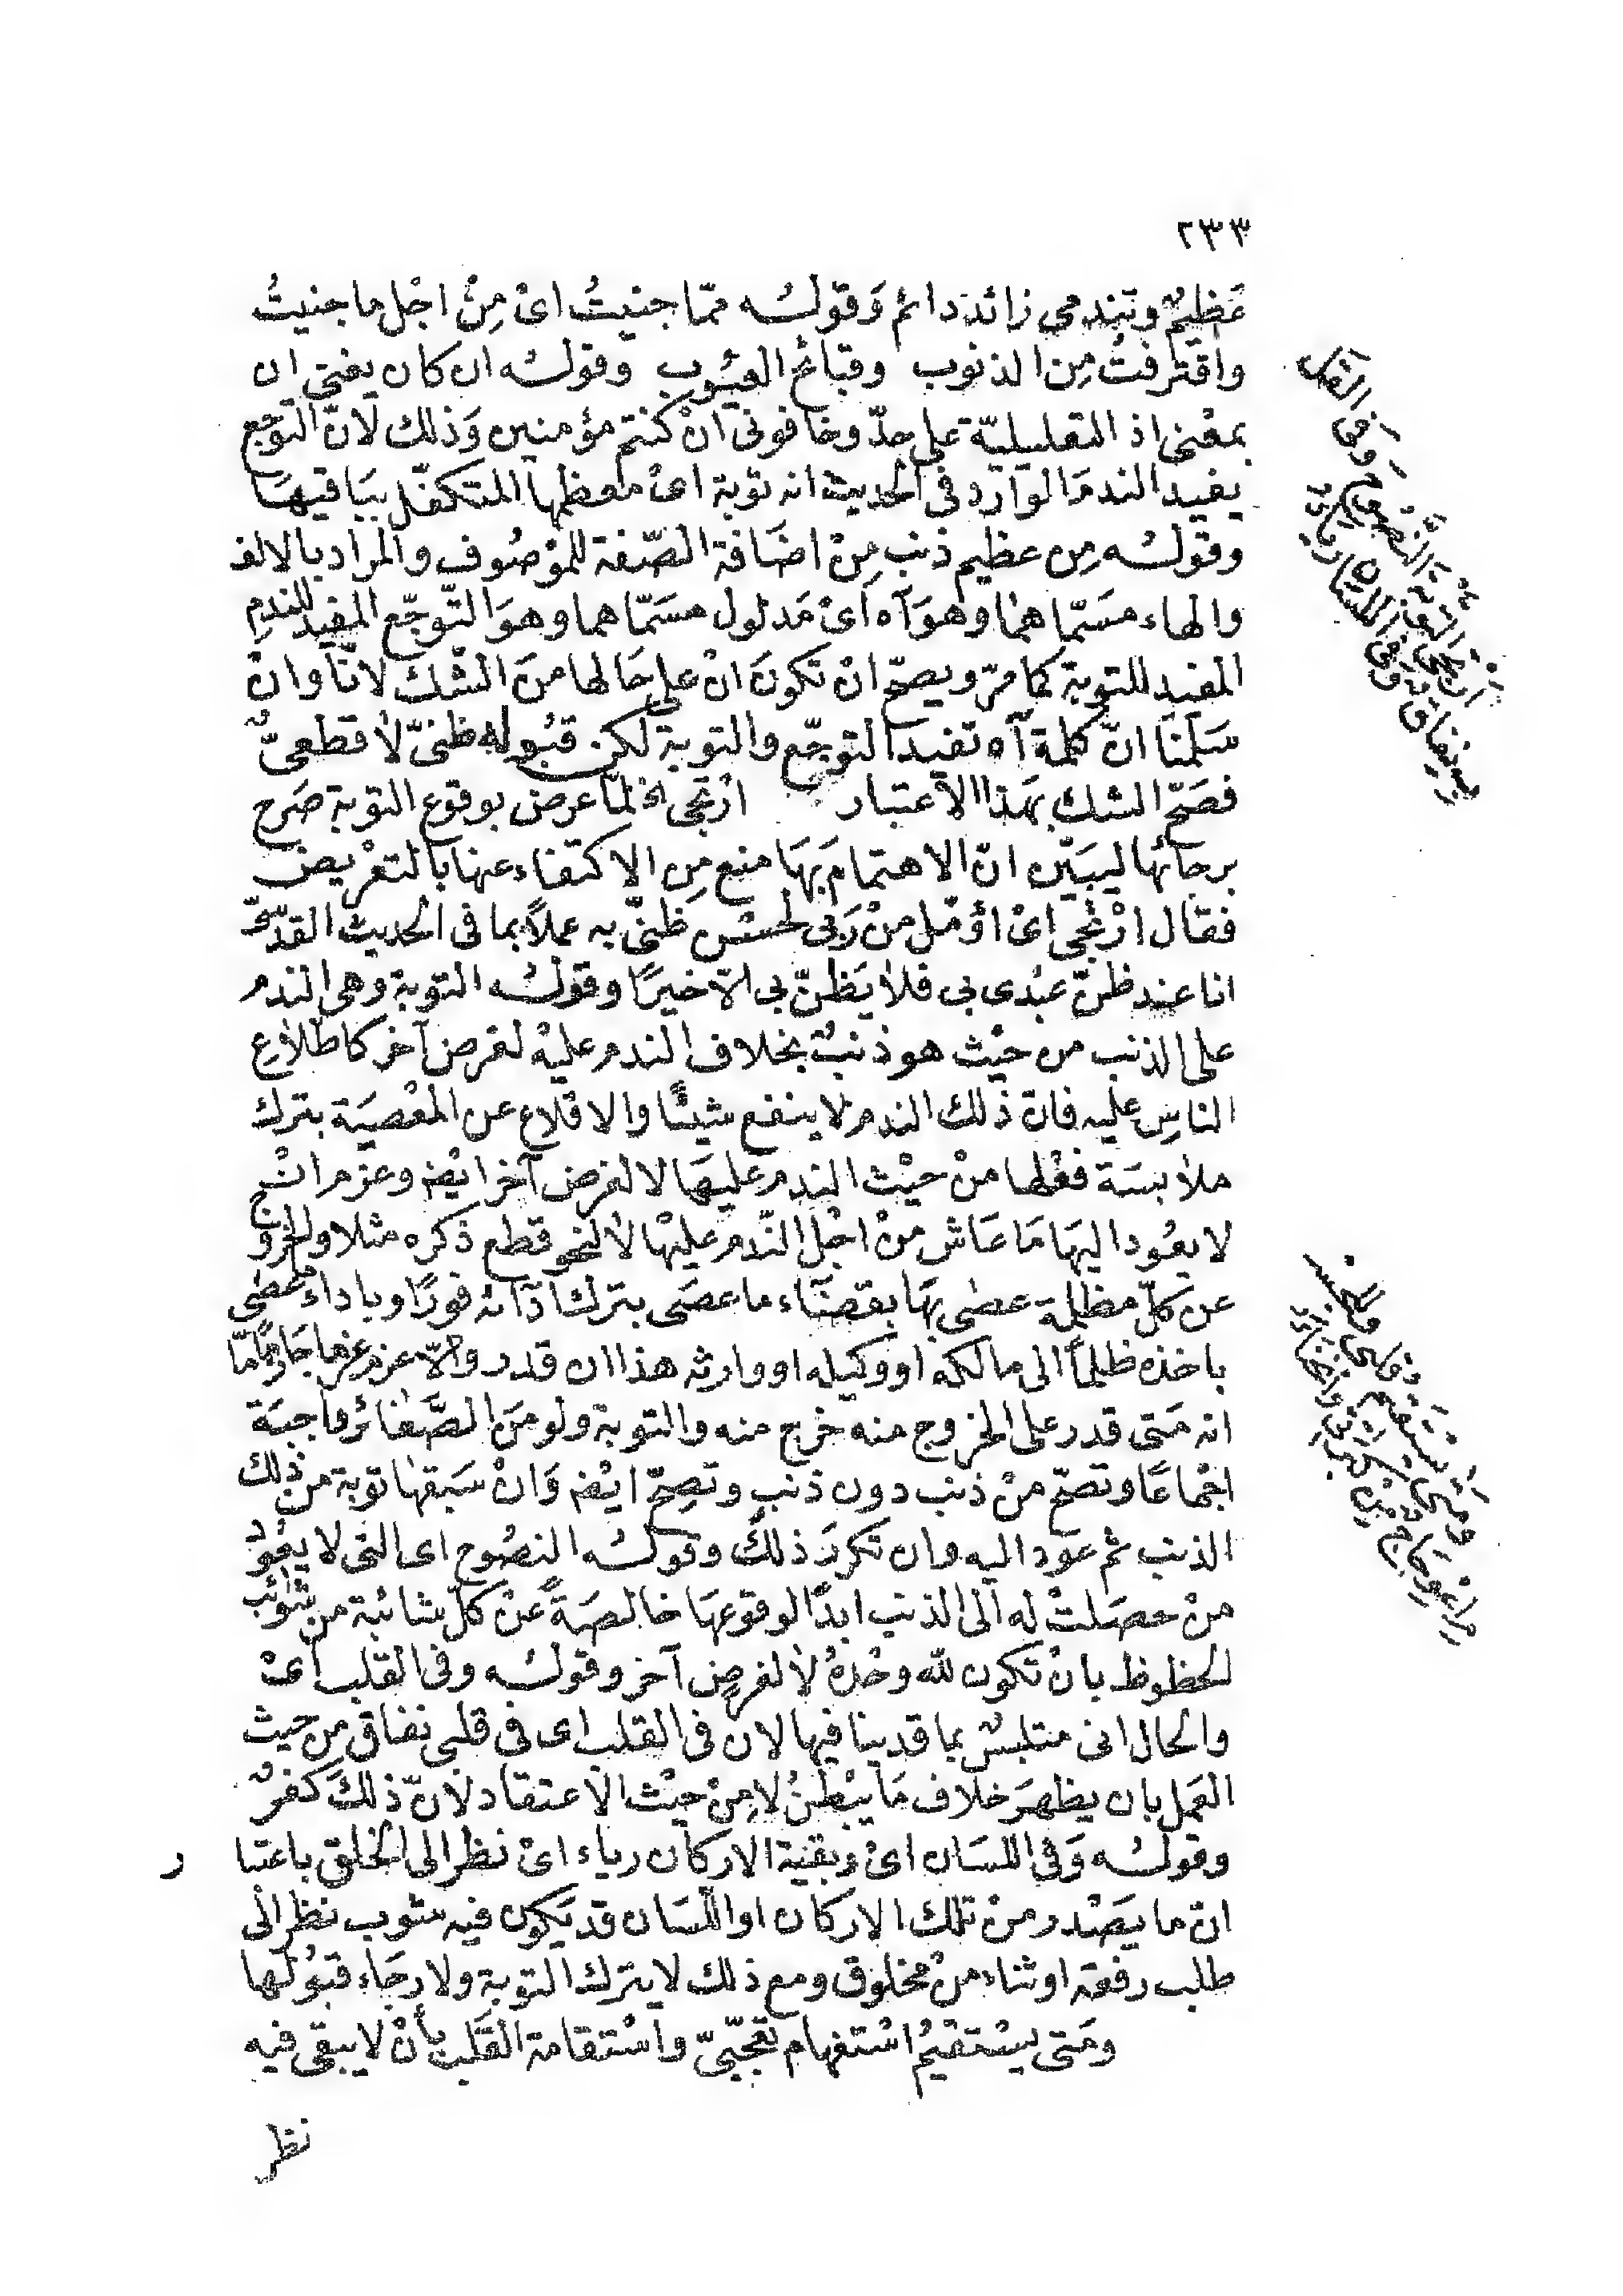 ٢٣٣
عَظيمٌ وتندمى زائد دائم وَقولُه ممّا جنيتُ اىْ مِنْ اجْل ما جنيتُ
واقترفتُ مِن الذنوب وقبائح العيُوب وقولُه ان كان يغنى ان
بمعْنى اذ التعليليّة على حدّ وخافونى انْ كنتم مؤمنين وَذلك لانّ التوجّع
يفيد الندمَ الوارد فى الحديث انه توبة اىْ معظمها المتكفّل ببَاقيهَا
وقولُه مِن عظيم ذنب مِنْ اضَافة الصّفة للموْصُوف والمراد بالالف
والهاء مسَمّاهمَا وهوَ آه اىْ مَدلول مسَمّاهما وهوَ التّوجّع المفيد للندمِ
المفيد للتوبة كما مرّ ويصحّ انْ تكونَ انْ على حَالها منَ الشك لانّا وانْ
سَلّمنَا انّ كلمة آه تفيد التوجّع والتوبة لكن قبُوله ظنىّ لا قطعىٌّ
فصَحّ الشك بهَذا الاعتبار ارْتجى الخ لمّا عرض بوقوع التوبة صَرح
برجائها ليبَيّن انّ الاهتمامَ بهَا منع مِن الاكتفاء عنها بالتعْريض
فقال ارْتجى اىْ اؤمّل منْ رَبى لحسْن ظنّى به عملاً بما فى الحديث القدسّى
انا عند ظنّ عبْدى بى فلا يَظنّ بى الّا خيرًا وقولُه التوبة وهى الندم
على الذنب من حيْث هو ذنبٌ بخلاف الندم عليْه لغرض آخر كاطّلاعِ
الناسِ عليه فانّ ذلك الندم لا ينفع شيئًا والاقلاع عن المعْصيَة بترك
ملابسَة فعْلها منْ حيْث الندم عليهَا لا لغرض آخر ايْضا وعزم انْ
لا يعُود اليهَا مَا عَاش منْ اجْل النّدم عليْها لا لنحو قطع ذكره مثلا والخروج
عن كلّ مظلمة عصٰى بهَا بقضَاء ما عصَى بترك ادَائه فورًا وباداء ما عصَى
باخذه ظلماً الى مالكه او وكيله او وارثه هذا ان قدر والّا عزم عزما جَازمًا
انه مَتى قدر على الخروج منه خرج منه والتوبة ولو منَ الصَّغائر واجبَة
اجْماعًا وتصحّ منْ ذنب دون ذنب وتصِحّ ايْضا وَانْ سَبقهَا توبة من ذلك
الذنب ثم عود اليه وان تكررَ ذلكَ وقولُه النصُوح اى التى لا يعُودُ
منْ حصَلتْ له الى الذنب ابدًا لوقوعهَا خالصَةً عنْ كلّ شائبة من شوائب
الحظوظ بانْ تكون لله وحْدهُ لا لغرضٍ آخر وقولُه وفى القلب اىْ
والحال انى متلبسٌ بما قد ينافيها لان فى القلب اى فى قلبى نفاق من حيث
العمَل بان يظهرَ خلاف مَا يبْطنُ لا مِنْ حيْث الاعتقاد لانّ ذلكَ كفرٌ
وقولُه وَفى اللسَان اىْ وبقيّة الاركان رياء اىْ نظر الى الخلق باعتبار
انّ ما يصْدر منْ تلك الاركان او اللّسَان قد يَكون فيه شوب نظر الى
طلب رفعة او ثناء منْ مخلوق ومع ذلك لا يترك التوبة ولا رجَاء قبُولها
ومَتى يسْتقيمُ اسْتفهام تعجّبىّ واسْتقامة القَلب بأنْ لا يبقى فيه
نظر
ارتجى التوبة النصوح وفى القلب
نفاق وفى اللسان رياء
ومتى يستقيم قلبى